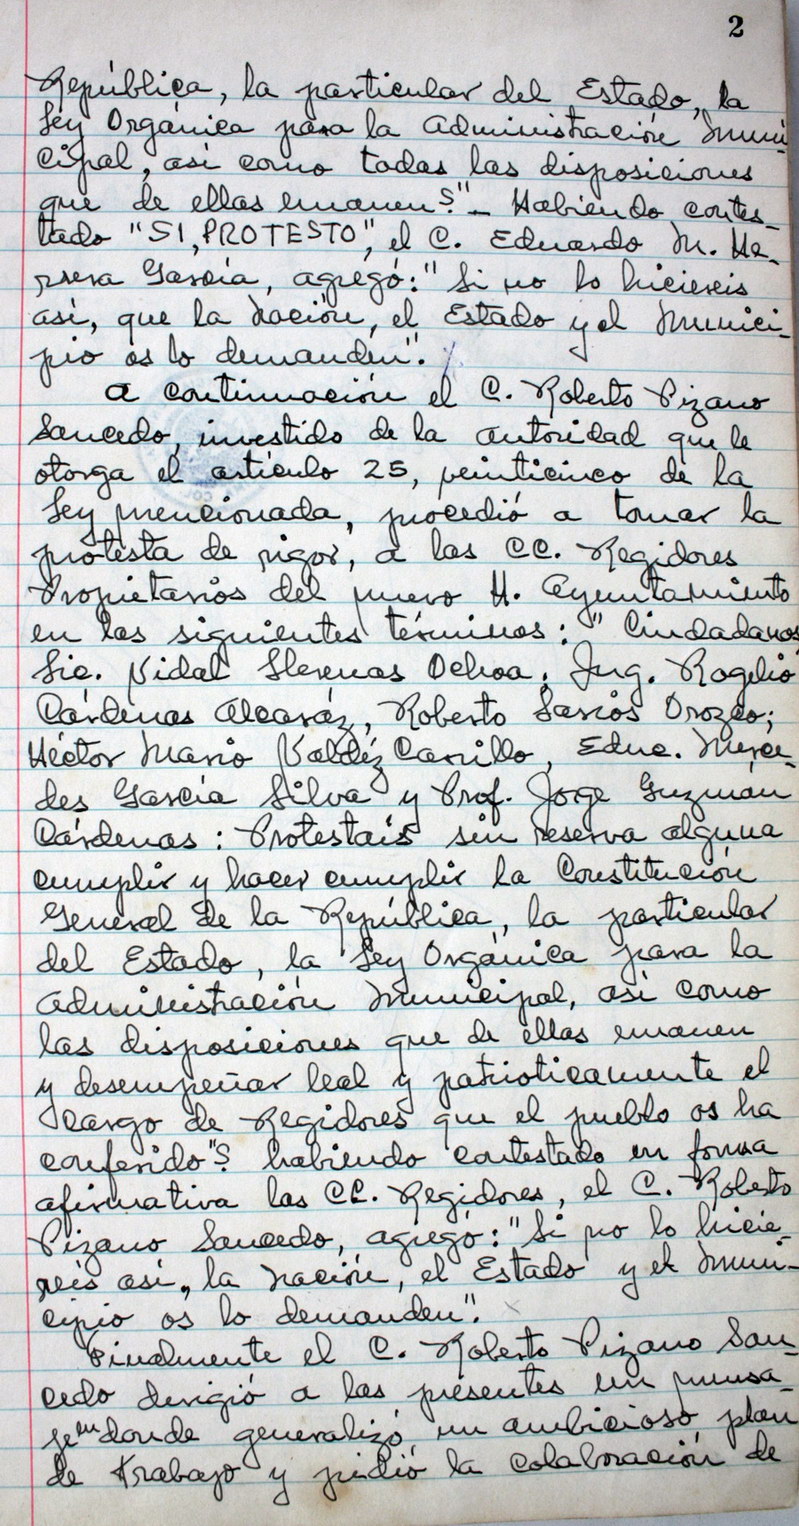 2
República, la particular del Estado, la
Ley Orgánica para la Administración Muni
cipal, así como todas las disposiciones
que de ellas emanen?"_ Habiendo contes_
tado "SI, PROTESTO", el C. Eduardo M. He_
rrera García, agregó: "Si no lo hiciereis
así, que la Nación, el Estado y el Munici_
pio os lo demanden".
A continuación el C. Roberto Pizano
Saucedo, investido de la autoridad que le
otorga el artículo 25, veinticinco de la
Ley mencionada, procedió a tomar la
protesta de rigor, a los CC. Regidores
Propietarios del nuevo H. Ayuntamiento
en los siguientes términos: "Ciudadanos
Lic. Vidal Llerenas Ochoa; Ing. Rogelio
Cárdenas Alcaráz, Roberto Larios Orozco;
Héctor Mario Valdéz Carrillo, Educ. Merce_
des García Silva y Prof. Jorge Guzmán
Cárdenas: Protestais sin reserva alguna
cumplir y hacer cumplir la Constitución
General de la República, la particular
del Estado, la Ley Orgánica para la
Administración Municipal, así como
las disposiciones que de ellas emanen
y desempeñar leal y patrioticamente el
cargo de Regidores que el pueblo os ha
conferido"? habiendo contestado en forma
afirmativa los CC. Regidores, el C. Roberto
Pizano Saucedo, agregó: "Si no lo hicie_
reis así, la Nación, el Estado y el Muni_
cipio os lo demanden".
Finalmente el C. Roberto Pizano Sau_
cedo dirigió a los presentes un mensa_
je en donde generalizó un ambicioso plan
de trabajo y pidió la colaboración de